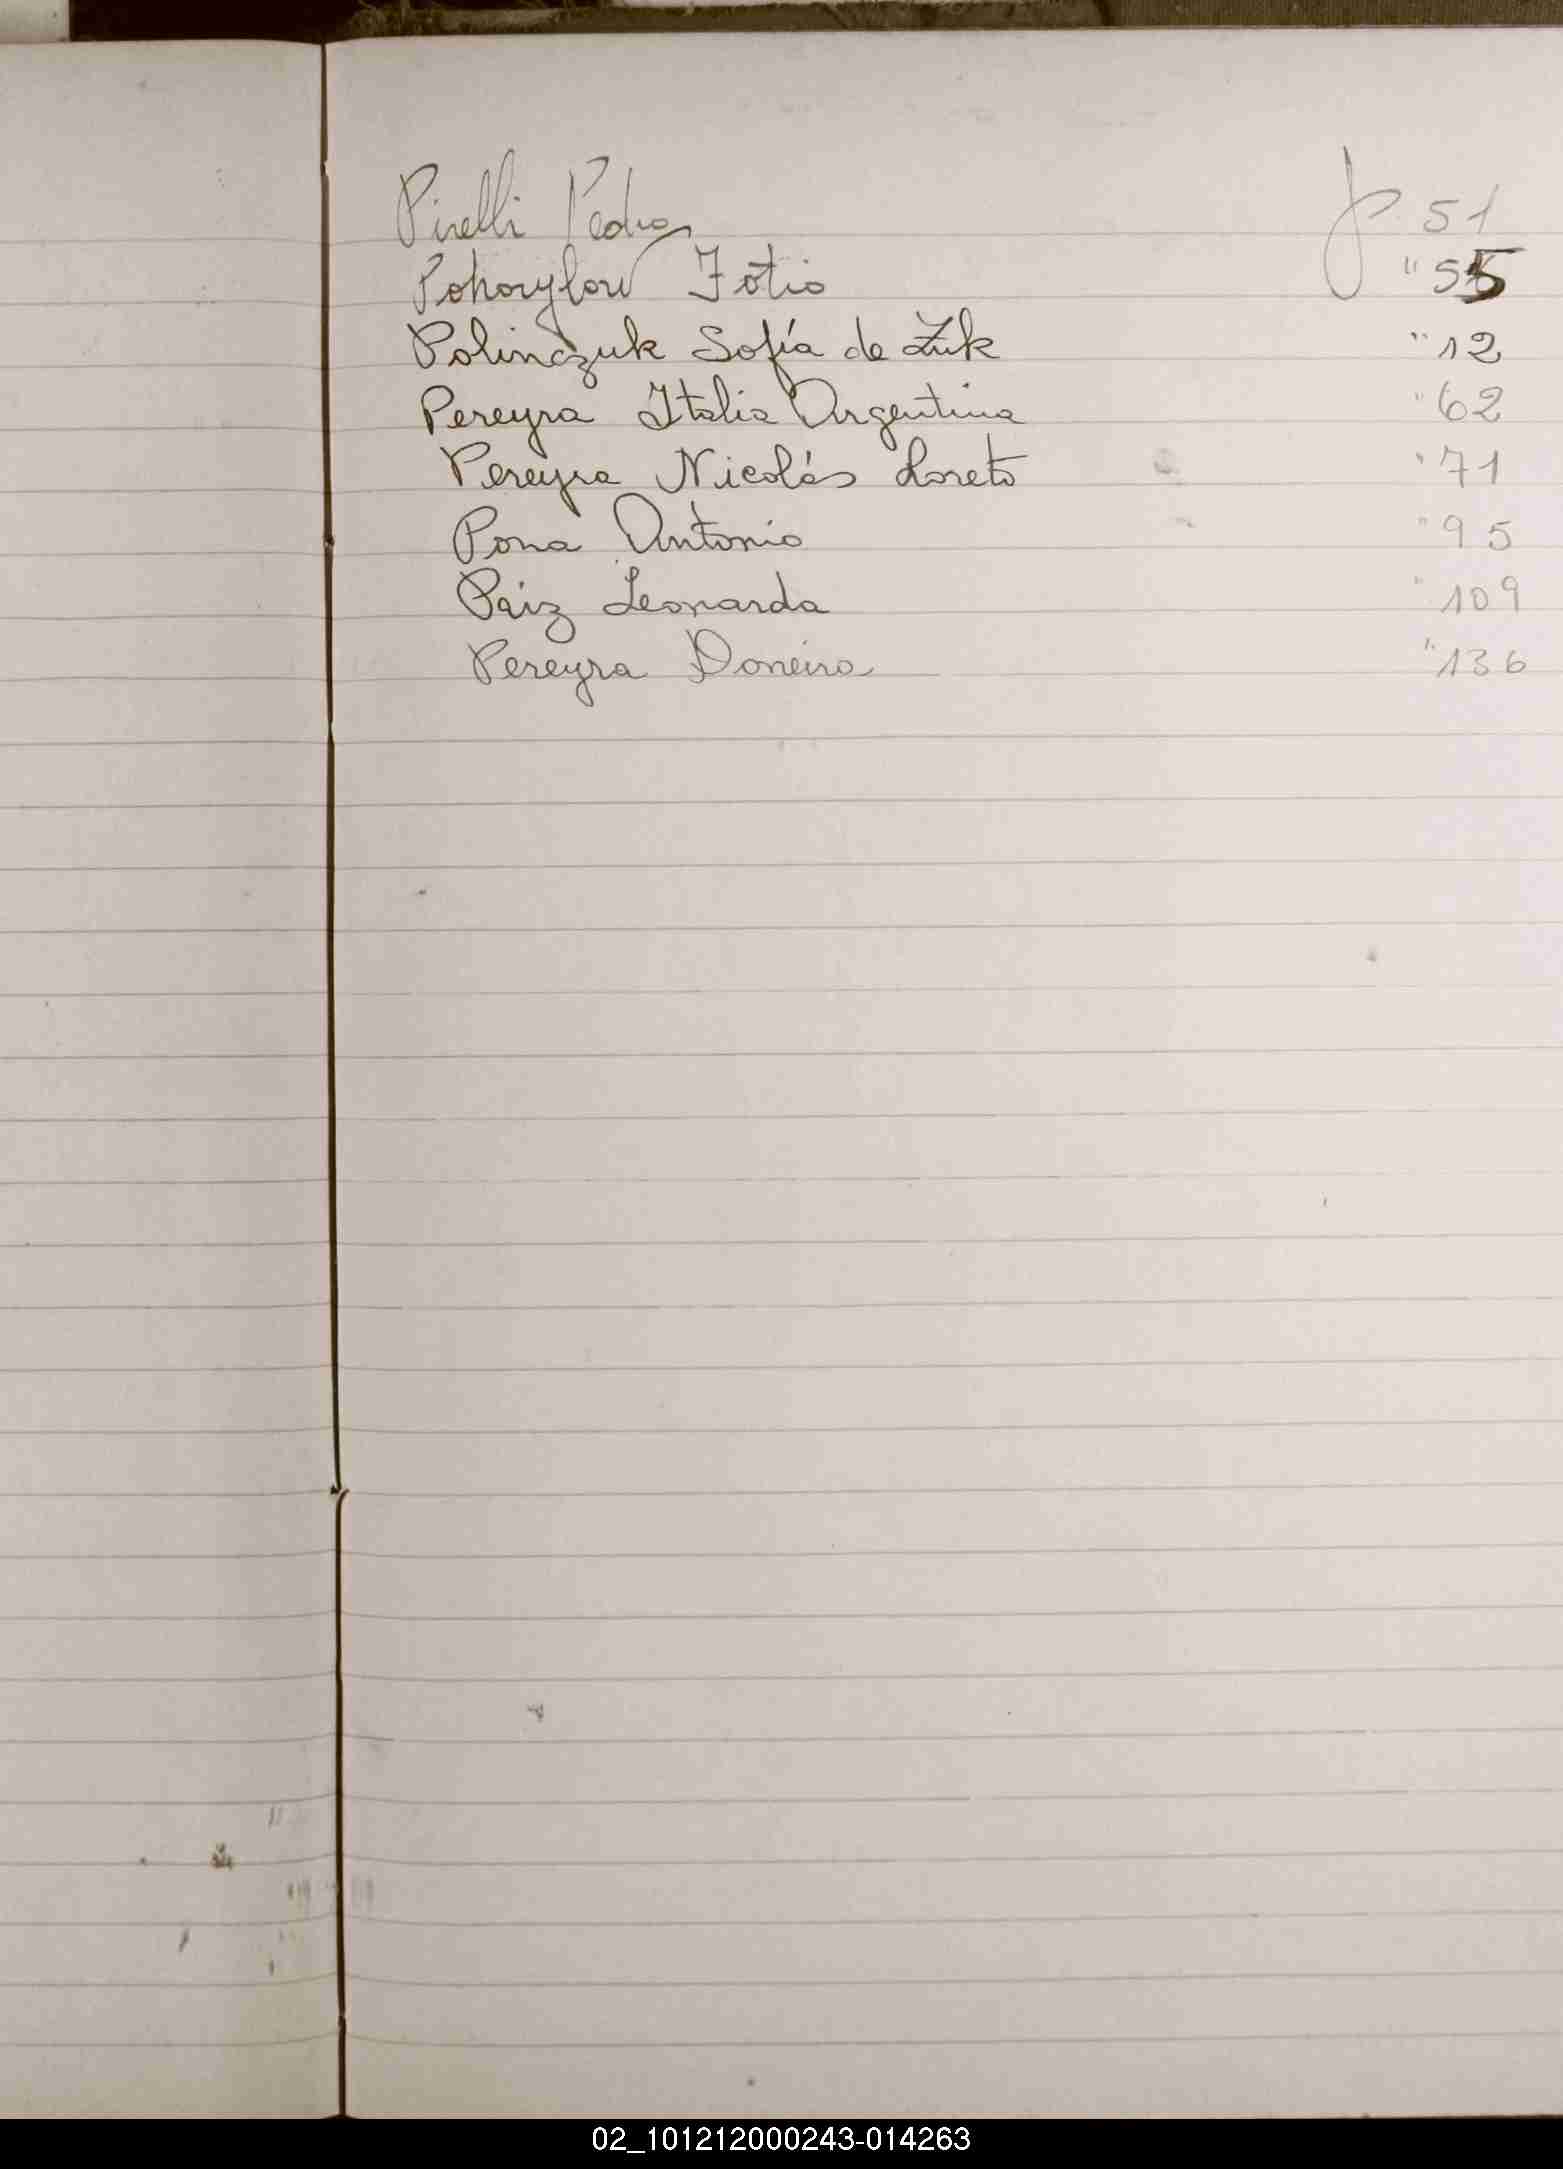 Pirelli Pedro f. 51
Pohorylow Fotio " 55
Polinczuk Sofía de Zuk " 12
Pereyra Italia Argentina " 62
Pereyra Nicolás Loreto " 71
Pona Antonio " 95
Páiz Leonarda " 109
Pereyra Doneira " 136
02_101212000243-014263